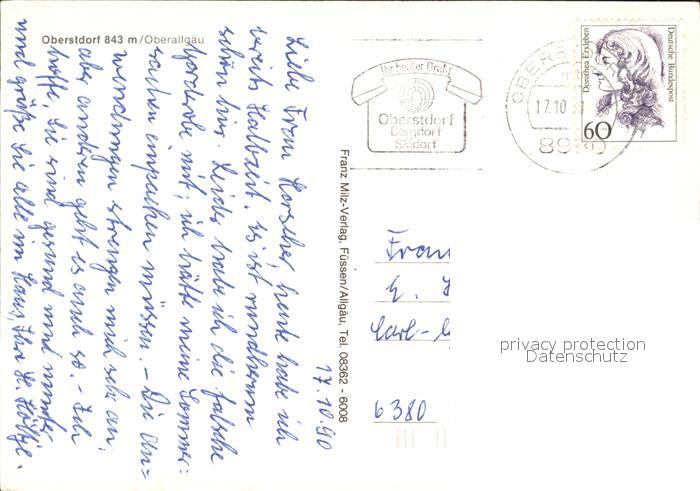 Oberstdorf 843 m/Oberallgäu
17.10.90
Liebe Frau Horscher, heute habe ich
bereits Halbzeit. Es ist rundherum
schön hier. Leider habe ich die falsche
Garderobe mit; ich hätte meine Sommer=
sachen einpacken müssen. – Die An=
wendungen strengen mich sehr an,
aber anderen geht es auch so. – Ich
hoffe, Sie sind gesund und munter
und grüße Sie alle im Haus, Ihre H.
Franz Milz-Verlag, Füssen/Allgäu, Tel. 08362 - 6008
Ihr heißer Draht
Oberstdorf
Bergdorf
Skidorf
OBERS
17.10
89
Dorothea Erxleben
Deutsche Bundespost
60
Frau
E.
Carl-
6380
privacy protection
Datenschutz